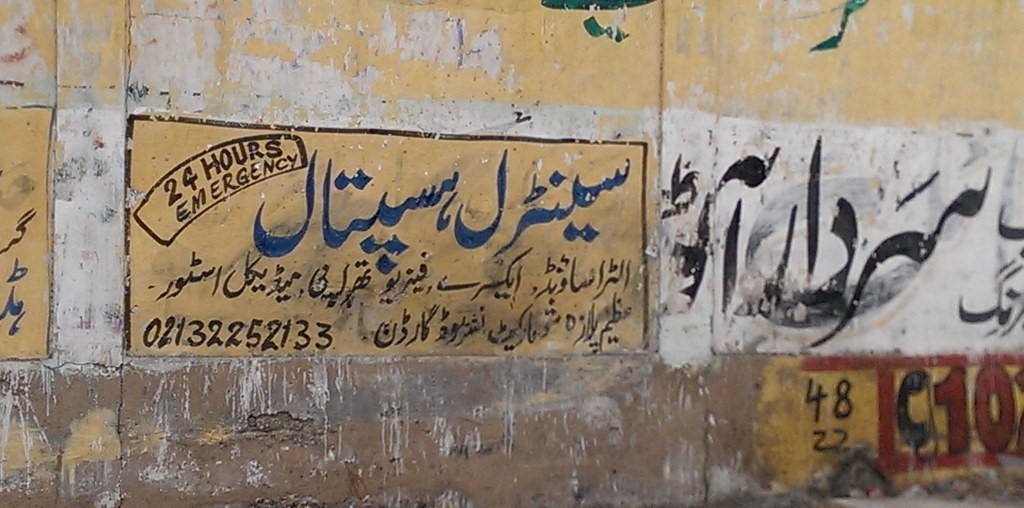 24 HOURS
EMERGENCY
سینٹرل ہسپتال
الٹراساؤنڈ، ایکسرے، فیزیو تھراپی، میڈیکل اسٹور۔
عظیم پلازہ مارکیٹ نشتر روڈ گارڈن۔
02132252133
سردار آٹو
48
22